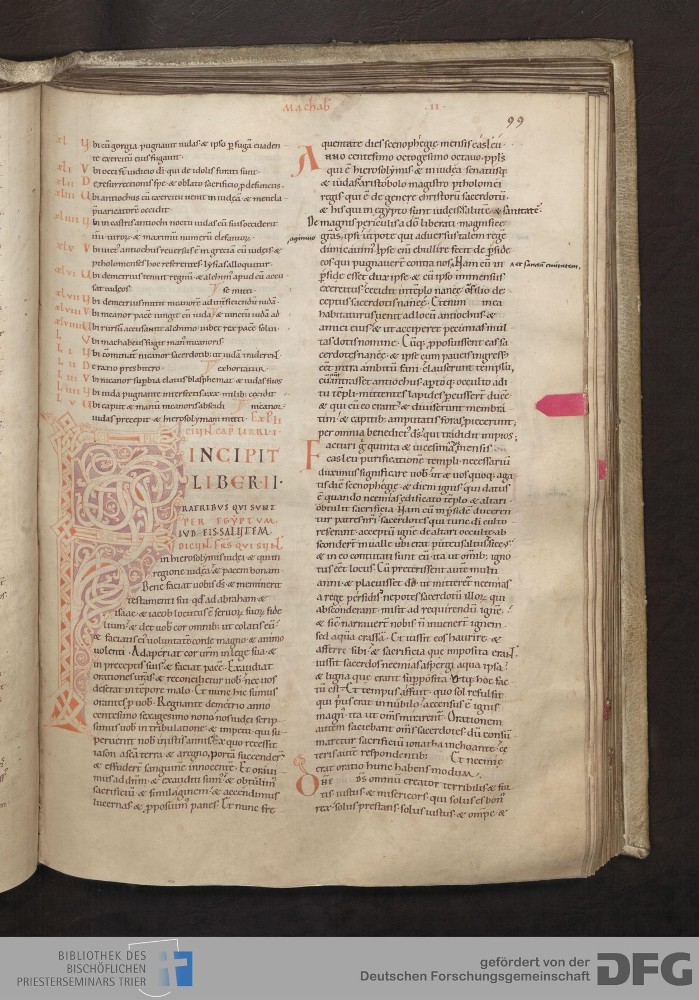 Machab
.II.
99
xl Vbi cū gorgia pugnauit iudas & ipso p̱ fugā euaden
te exercitū eius fugauit.
xli Vbi occisi sunt iudicio dī qui de idolis furati sunt
xlii De resurrectionis spe & oblato sacrificio p̱ defunctis.
Vbi antiochus cū exercitu uenit in iudeā & menela
p̱uaricatorē occidit
Vbi in castris antiochi noctu iudas cū suis occiderit
iiii. uiros & maximū numerū elefantorꝝ.
xlv Vbi uicto antiochus reuersus ē in greciā cū iudeis &
ptholomenses hoc referentes lysias alloquitur.
xlvi Vbi demetrius tenuit regnū & alchim apud eū accu
sat iudeos se muri
xlvii Vbi demetrius mittit nicanorē ad interficiendū iudā.
xlviii Vbi nicanor pacē iungit cū iuda & uinctū iudā ad
Vbi rursū accusante alchimo iubet rex pacē solui.
L Vbi machabeus fugit manū nicanoris
Vbi cominatꝰ nicanor sacerdotib; ut iudā traderent.
De razio presbitero exhortatur
Vbi nicanor suꝑbia elatus blasphemat & iudas suos
Vbi iuda pugnante interfectis xxx. milib; occidit
Vbi caput & manū nicanoris abscidi nicanor
iudas precepit & hierosolymam mitti.
INCIPIT
LIBER·II·
FRATRIBUS QUI SUNT
PER EGYPTUM
IUDEIS SALUTEM
DICUNT FRS QUI SUNT
in hierosolymis iudei & qui in
regione iudeę & pacem bonam.
Bene faciat uobis dš & meminerit
testamenti sui qđ ad abraham &
isaac & iacob locutus ē seruorꝝ suorꝝ fide
lium & det uob cor omnib; ut colatis eū
& faciatis eī uoluntatē corde magno & animo
uolenti. Adaperiat cor urm̄ in lege sua &
in preceptis suis & faciat pacē. Exaudiat
orationes uras & reconcilietur uob nec uos
deserat in tempore malo. Et nunc hic sumus
orantes p̱ uob. Regnante demetrio anno
centesimo sexagesimo nono nos iudei scrip
simus uob in tribulatione & impetu qui su
peruenit nob in istis annis. Ex quo recessit
iason a sca terra & a regno, portā succender̄
& effuder̄ sanguinē innocentē. Et oraui
mus ad dnm & exauditi sumꝰ & obtulimꝰ
sacrificiū & similaginem & accendimus
lucernas & p̱posuimꝰ panes. Et nunc fre
quentate dies scenophegie mensis casleu
Anno centesimo octogesimo octauo. ppls
qui ē hierosolymis & in iudea senatusq;
& iudas aristobolo magistro ptholomei
regis qui ē de genere christorū sacerdotū.
& his qui in egypto sunt iudeis salutē & sanitatē.
De magnis periculis a dō liberati magnifice
gras agimus ipsi ut pote qui aduersus talem regē
dimicauimꝰ. Ipse eni ebullire fecit de p̱side
eos qui pugnauert contra nos & scām ciuitatem.
Nam cū in
p̱side esset dux ipse & cū ipso immensus
exercitus cecidit in templo naneę csilio de
ceptus sacerdotis naneę. Etenim cū ea
habitaturus uenit ad locū antiochus &
amici eius & ut acciperet pecunias mul
tas dotis nomine. Cūq; p̱posuissent eas sa
cerdotes naneę & ipse cum paucis ingressꝰ
eēt intra ambitū fani clauserunt templū,
cū intrasset antiochus apertoq; occulto adi
tu tēpli mittentes lapides pcusser̄ ducē
& qui cū eo erant & diuiserunt membra
tim & capitib; amputatis foras proiecerunt.
per omnia benedictꝰ dš qui tradidit impios;
Facturi ig quinta & uicesima mensis
casleu purificationē templi necessariū
duximus significare uob ut & uos quoq; aga
tis diē scenophegie & diem ignis qui datus
ē quando neemias edificato templo & altari
obtulit sacrificia. Nam cū in p̱side ducerēn
tur patres nri sacerdotes qui tunc dī culto
res erant acceptū ignē de altari occulte ab
sconder̄ in ualle ubi erat puteus altus & siccꝰ
& in eo contutati sunt eū ita ut omib; igno
tus eēt locus. Cū preterissent autē multi
anni & placuisset dō ut mitteret neemias
a rege persidis nepotes sacerdotū illorꝝ qui
absconderant misit ad requirendū ignē
& sic narruert nob ń inuener̄ ignem
sed aquā crassā. Et iussit eos haurire &
afferre sibi & sacrificia que imposita erant
iussit sacerdos neemias aspergi aqua ipsa
& ligna que erant suꝑposita. Vtq; hoc fac
tū est. Et tempus affuit quo sol refulsit
qui p̱us erat in nubilo accensus ē ignis
magnꝰ ita ut oms mirarent. Orationem
autem faciebant oms sacerdotes dū consū
maretur sacrificiū ionatha inchoante ce
teris autē respondentib; Et neemię
erat oratio hunc habens modum.
Dne dš omniū creator terribilis & for
tis iustus & misericors qui solus es bonꝰ
rex solus prestans solus iustus & omps &
BIBLIOTHEK DES
BISCHÖFLICHEN
PRIESTERSEMINARS TRIER
gefördert von der
Deutschen Forschungsgemeinschaft
DFG